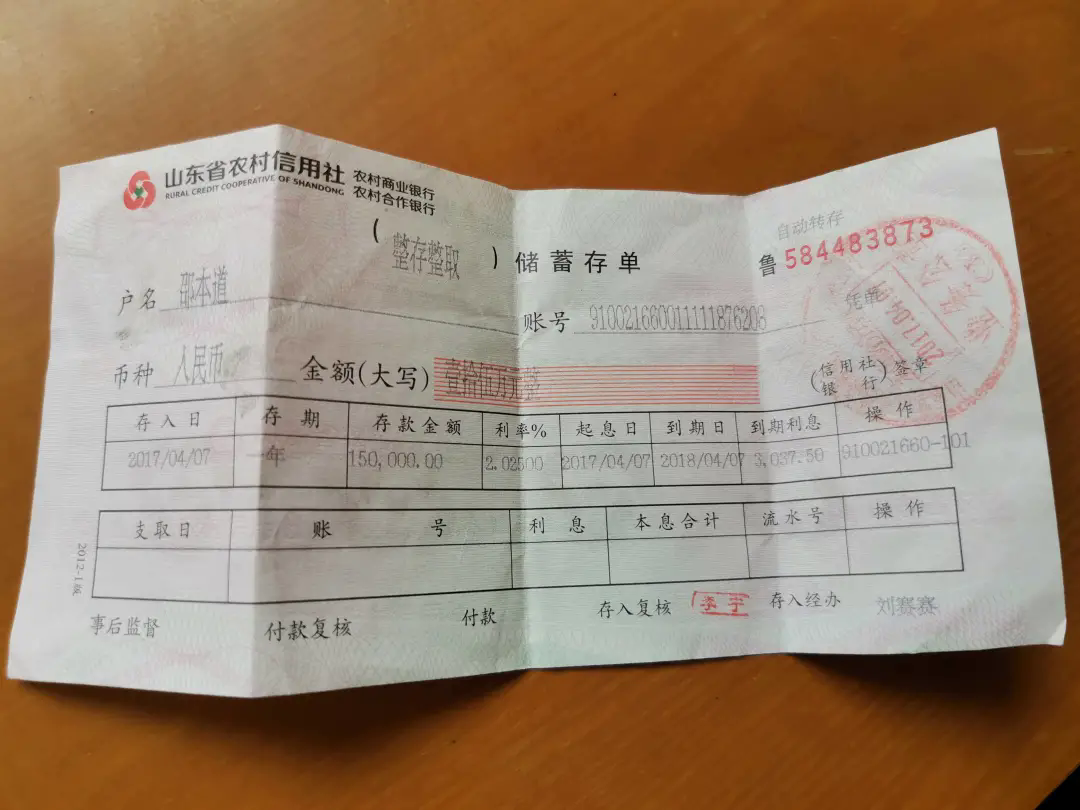 山东省农村信用社 农村商业银行
RURAL CREDIT COOPERATIVE OF SHANDONG 农村合作银行
(整存整取)储蓄存单
自动转存
鲁 584483873
户名 邵本道
账号 910021660011111876203
凭单
币种 人民币 金额(大写) 壹拾伍万元整
(信用社 银行) 签章
2017.04
存入日 存期 存款金额 利率% 起息日 到期日 到期利息 操作
2017/04/07 一年 150,000.00 2.02500 2017/04/07 2018/04/07 3,037.50 910021660-101
支取日 账号 利息 本息合计 流水号 操作
2012-1版
事后监督 付款复核 付款 存入复核 李宁 存入经办 刘赛赛